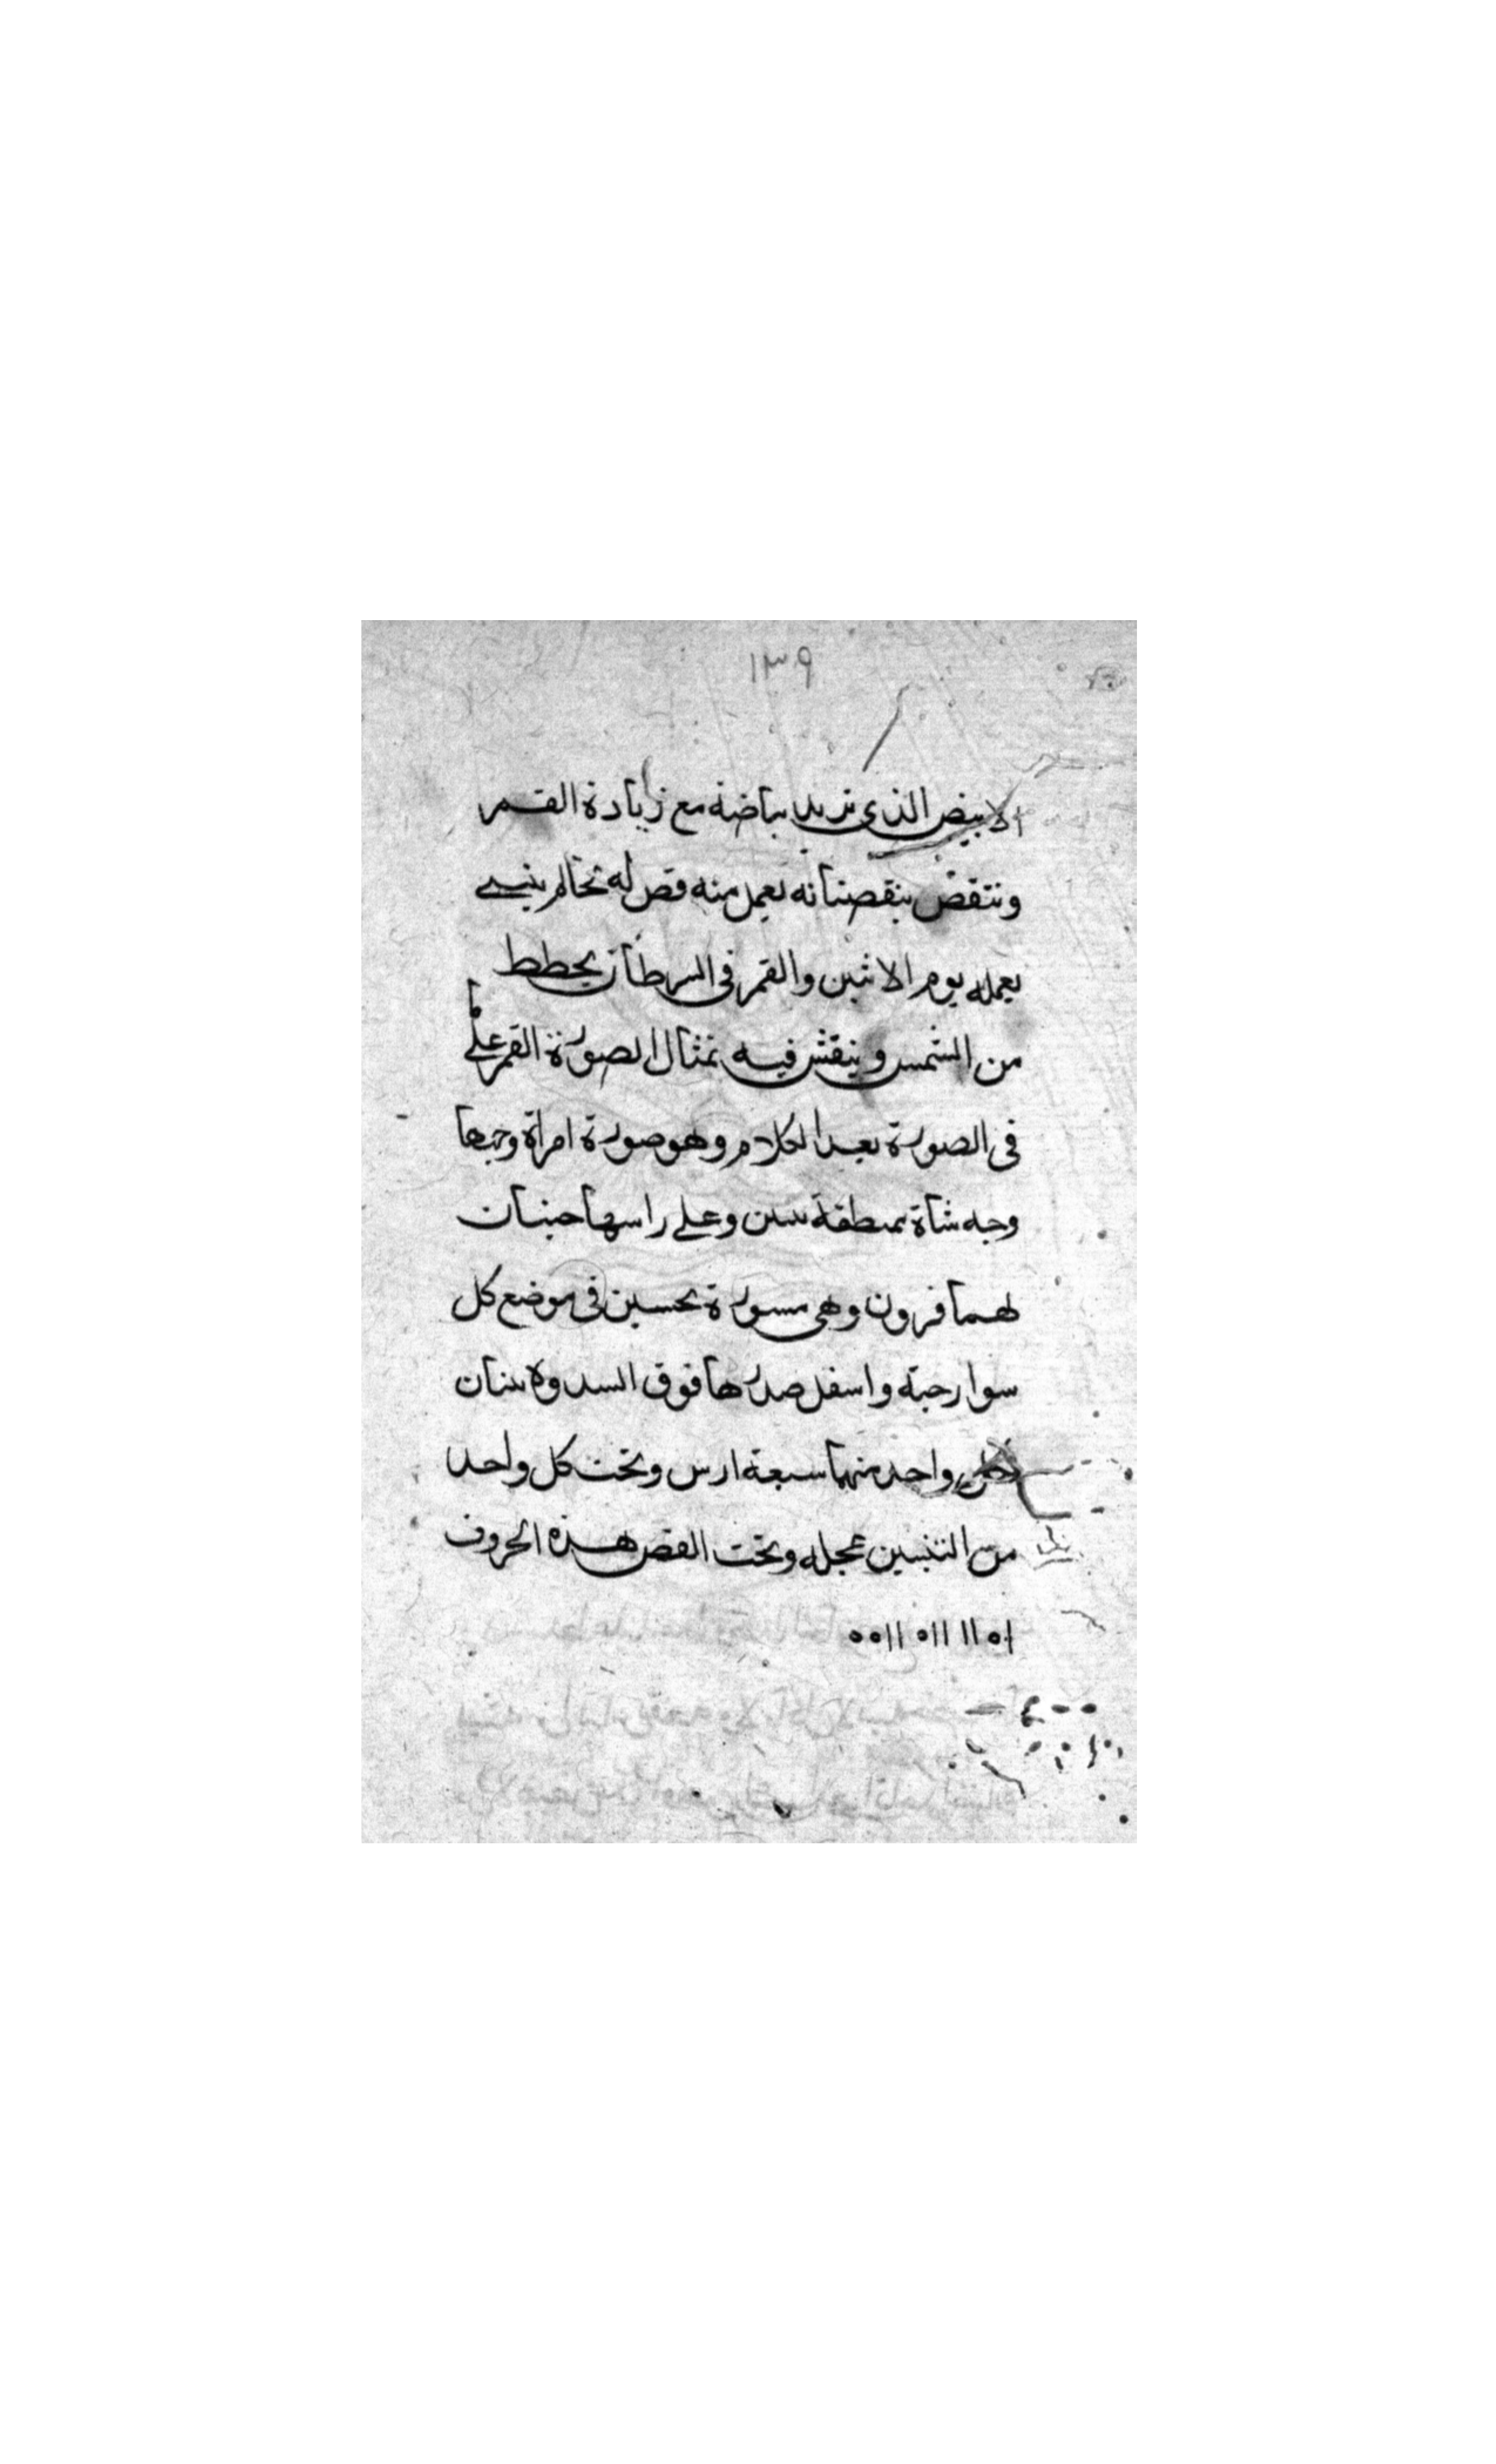 ١٣٩
الابيض الذى يزيد بياضه مع زيادة القمر
وينتقص بنقصانه يعمل منه فص له تخالم بنيسى
يعمله يوم الاثنين والقمر فى السرطان يخطط
من الشمس وينقش فيه تمثال الصورة القمر على
فى الصورة بعد الكلام وهو صورة امراة وجهها
وجه شاة بمنطقة تنين وعلى راسها حيتان
لهما قرون وهى مسورة بحسين فى موضع كل
سوار حية واسفل صدرها فوق السدوة تنان
كل واحد منهما سبعة ارس وتحت كل واحد
من التنسين عجله وتحت الفص هذه الحروف
ا٥١١ ١١ ٥١١ ١١٥٥